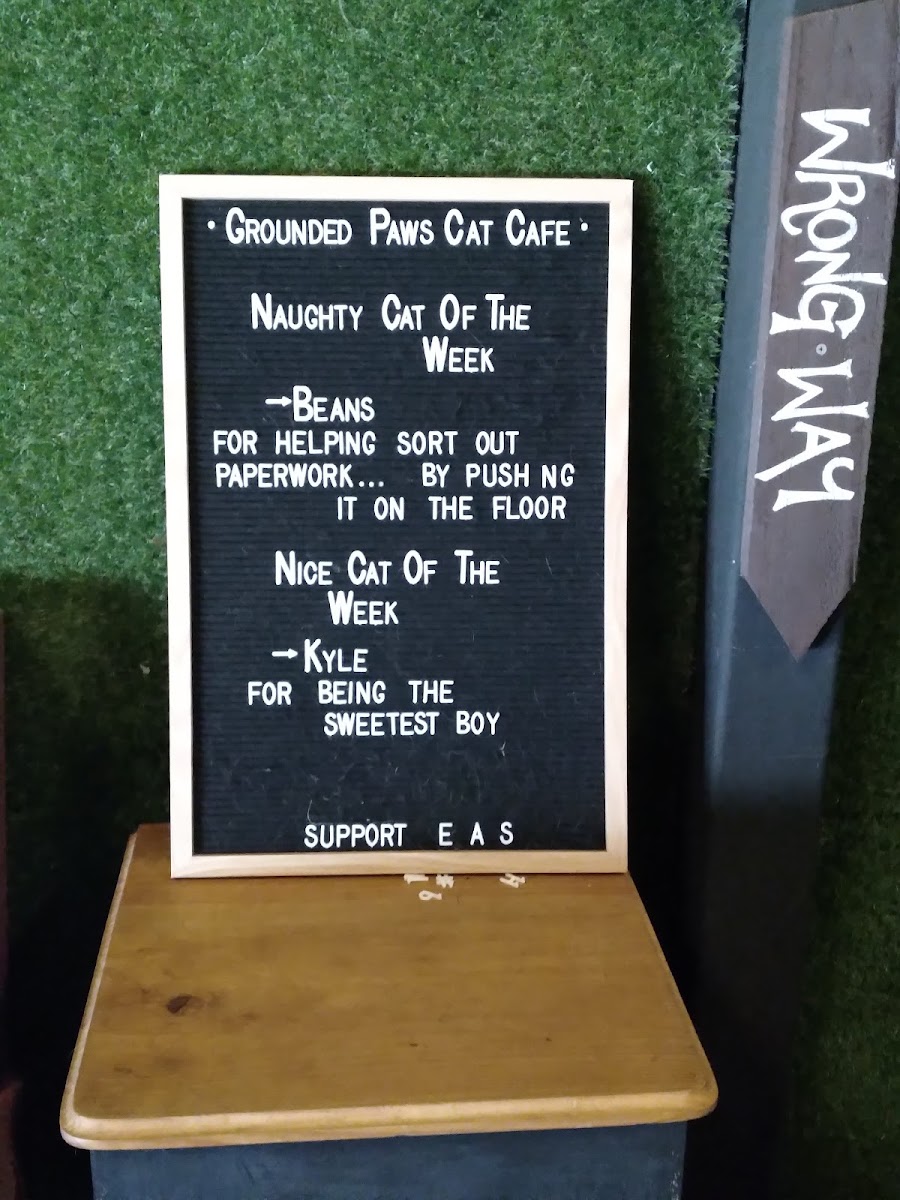 · GROUNDED PAWS CAT CAFE ·
NAUGHTY CAT OF THE
WEEK
→BEANS
FOR HELPING SORT OUT
PAPERWORK... BY PUSH NG
IT ON THE FLOOR
NICE CAT OF THE
WEEK
→KYLE
FOR BEING THE
SWEETEST BOY
SUPPORT E A S
WRONG·WAY